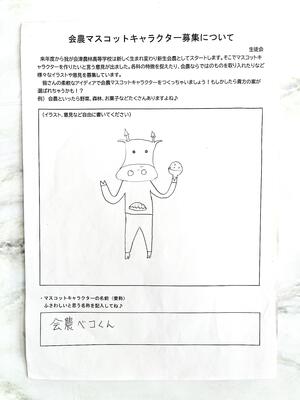 会農マスコットキャラクター募集について
生徒会
来年度から我が会津農林高等学校は新しく生まれ変わり新生会農としてスタートします。そこでマスコットキ
ャラクターを作りたいと言う意見が出ました。各科の特徴を捉えたり、会農ならではのものを取り入れたりなど
様々なイラストや意見を募集しています。
皆さんの柔軟なアイディアで会農マスコットキャラクターをつくっちゃいましょう！もしかしたら貴方の案が
選ばれちゃうかも！？
例）会農といったら野菜、森林、お菓子などたくさんありますよね♪
（イラスト、意見など自由に書いてください）
・マスコットキャラクターの名前（愛称）
ふさわしいと思う名称を記入してね♪
会農ベコくん